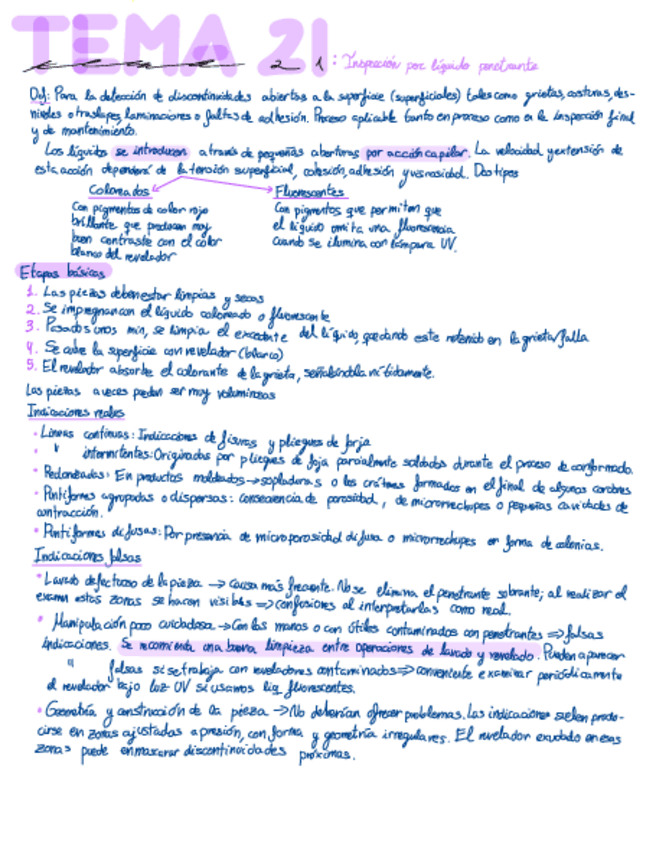 TEMA 21
21: Inspección por líquido penetrante
Def: Para la detección de discontinuidades abiertas a la superficie (superficiales) tales como grietas, costuras, des-
niveles o traslapes, laminaciones o faltas de adhesión. Proceso aplicable tanto en proceso como en la inspección final
y de mantenimiento.
Los líquidos se introducen a través de pequeñas aberturas por acción capilar. La velocidad y extensión de
esta acción dependerá de la tensión superficial, cohesión, adhesión y viscosidad. Dos tipos
Coloreados Fluorescentes
Con pigmentos de color rojo
brillante que producen muy
buen contraste con el color
blanco del revelador
Con pigmentos que permiten que
el líquido emita una fluorescencia
cuando se ilumina con lámpara UV.
Etapas básicas
1. Las piezas deben estar limpias y secas
2. Se impregnan con el líquido coloreado o fluorescente
3. Pasados unos min, se limpia el excedente del líquido, quedando este retenido en la grieta/falla
4. Se cubre la superficie con revelador (blanco)
5. El revelador absorbe el colorante de la grieta, señalándola nítidamente.
Las piezas a veces pueden ser muy voluminosas
Indicaciones reales
• Líneas continuas: Indicaciones de fisuras y pliegues de forja
• " intermitentes: Originadas por pliegues de forja parcialmente soldados durante el proceso de conformado.
• Redondeadas: En productos moldeados → sopladuras o los cráteres formados en el final de algunos cordones
• Puntiformes agrupadas o dispersas: consecuencia de porosidad, de microrrechupes o pequeñas cavidades de
contracción.
• Puntiformes difusas: Por presencia de microporosidad difusa o microrrechupes en forma de colonias.
Indicaciones falsas
• Lavado defectuoso de la pieza → Causa más frecuente. No se elimina el penetrante sobrante; al realizar el
examen estas zonas se hacen visibles ⇒ confusiones al interpretarlas como real.
• Manipulación poco cuidadosa → Con las manos o con útiles contaminados con penetrantes ⇒ falsas
indicaciones. Se recomienda una buena limpieza entre operaciones de lavado y revelado. Pueden aparecer
" falsas si se trabaja con reveladores contaminados ⇒ conveniente examinar periódicamente
el revelador bajo luz UV si usamos liq fluorescentes.
• Geometría y construcción de la pieza → No deberían ofrecer problemas. Las indicaciones suelen produ-
cirse en zonas ajustadas a presión, con forma y geometría irregulares. El revelador exudado en esas
zonas puede enmascarar discontinuidades próximas.